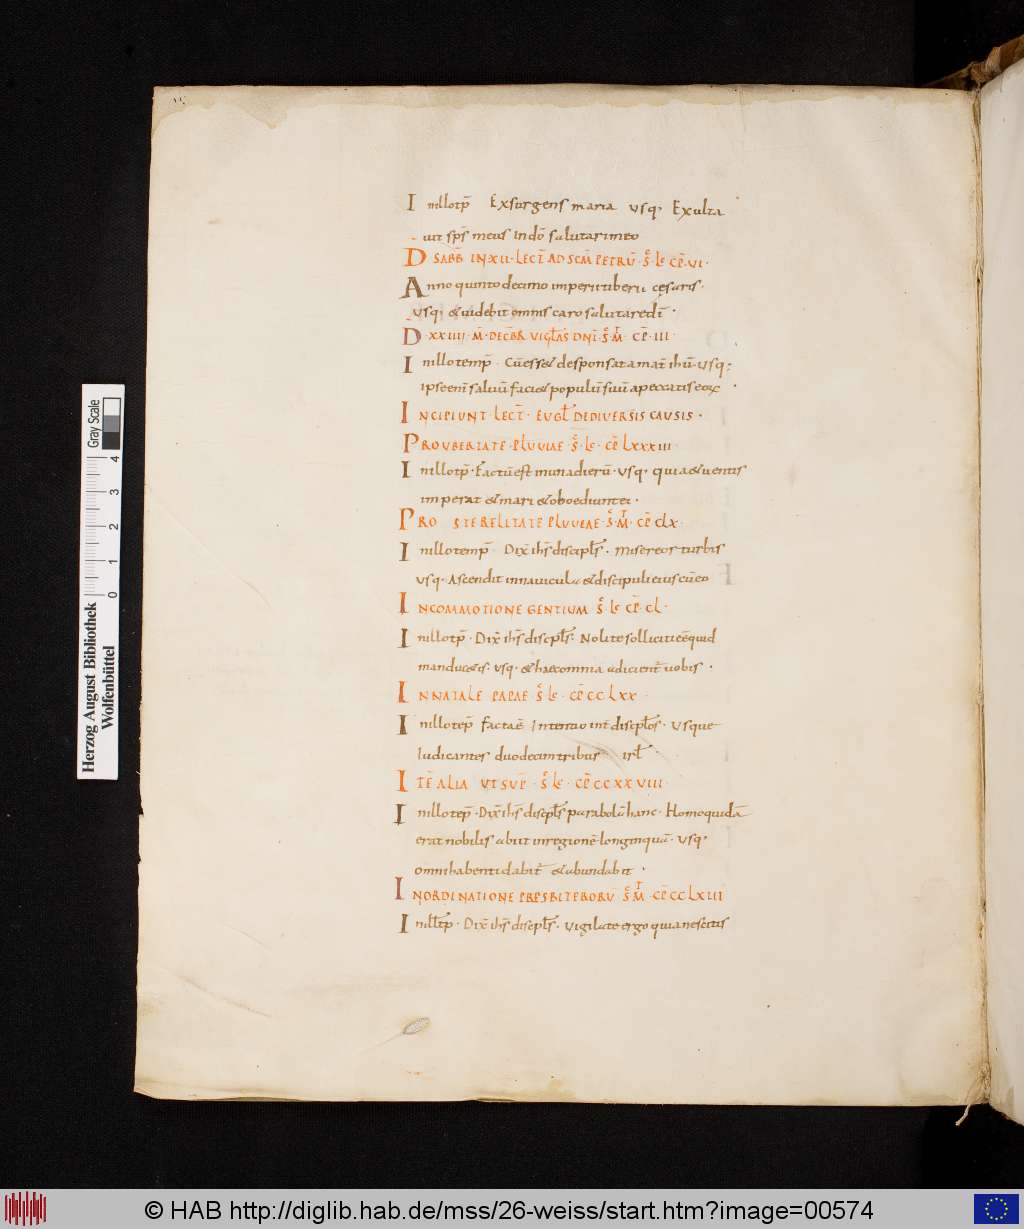 In illo tēp̄ Exsurgens maria usq; Exulta
uit sp̄s meus in dō salutari meo
D SABB̄ IN XII · LECT̄ AD SC̄M PETRŪ · S̄ · LC̄ CP̄ · VI ·
Anno quinto decimo imperii tiberii cesaris ·
usq; & uidebit omnis caro salutare dī ·
D XXIIII · M̄ · DECĒBR VIGL̄AS DN̄I · S̄ · M̄ · CP̄ · III ·
In illo temp̄ · Cū ess& desponsata mat̄ ih̄u · usq;
ipse eni saluū faci& populū suū a peccatis eoꝝ ·
INCIPIUNT LECT̄ · EUGL̄ DE DIVERSIS CAUSIS ·
PRO VBERTATE · PLUVIAE · S̄ · Lc̄ · CP̄ LXXXIII ·
In illo tp̄ · Factū est in una dierū · usq; quia & uentis
imperat & mari & oboediunt ei ·
PRO STERELITATE PLUVIAE · S̄ · M̄ · CP̄ CLX ·
In illo temp̄ · Dix̄ ih̄s discipl̄s · Misereor turbis
usq; Ascendit in nauicula & discipuli eius cū eo
IN COMMOTIONE GENTIUM S̄ · Lc̄ CP̄ · CL ·
In illo tp̄ · Dix̄ ih̄s discpl̄s · Nolite solliciti eē quid
manduc&is · usq; & haec omnia adicient̄ uobis ·
IN NATALE PAPAE S̄ Lc̄ · CP̄ CCLXX ·
In illo tēp̄ facta ē intentio int̄ discpl̄os · Usque
Iudicantes duodecim tribus isrl̄
ITĒ ALIA UT SUP̄ · S̄ Lc̄ · CP̄ CCXXVIII ·
In illo tēp̄ · Dix̄ ih̄s discpl̄s parabolā hanc · Homo quidā
erat nobilis abiit in regionē longinquā · usq;
omni habenti dabit̄ & abundabit ·
IN ORDINATIONE PRESBITERORŪ S̄ M̄ · CP̄ CCLXIII
In ill̄ tp̄ · Dix̄ ih̄s discpl̄s · Vigilate ergo quia nescitis
Herzog August Bibliothek
Wolfenbüttel
0 1 2 3 4
Gray Scale
© HAB http://diglib.hab.de/mss/26-weiss/start.htm?image=00574